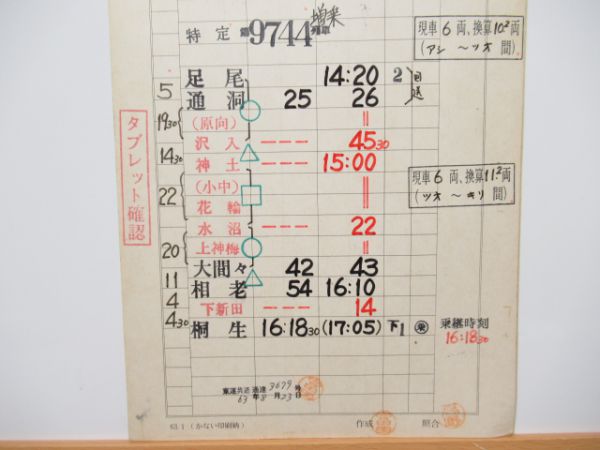 増乗
特定 第9744列車
現車6両、換算10²両
(アシ 〜ツオ 間)
足尾 14:20 2
5
通洞 25 26
回送
19 30
(原向) ||
沢入 --- 45 30
14 30
神土 --- 15:00
現車6両、換算11²両
(ツオ 〜キリ 間)
(小中) ||
22
花輪 ||
水沼 --- 22
20
上神梅 ||
大間々 42 43
11
相老 54 16:10
4
下新田 --- 14
4 30
桐生 16:18 30 (17:05) 下1
乗継時刻
16:18 30
タブレット確認
東運共達通達3679号
63年8月23日
63.1 (かない印刷納)
作成
照合